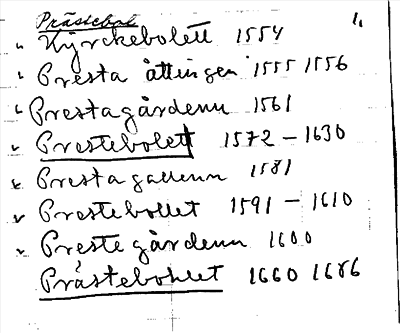 Prästebol 1.
Kyrckebolett 1554
Presta åttingen 1555 1556
Prestagårdenn 1561
Prestebolett 1572 - 1630
Prestaga
 1581
Prestebollet 1591 - 1610
Preste gårdenn 1600
Prästebohlet 1660 1686